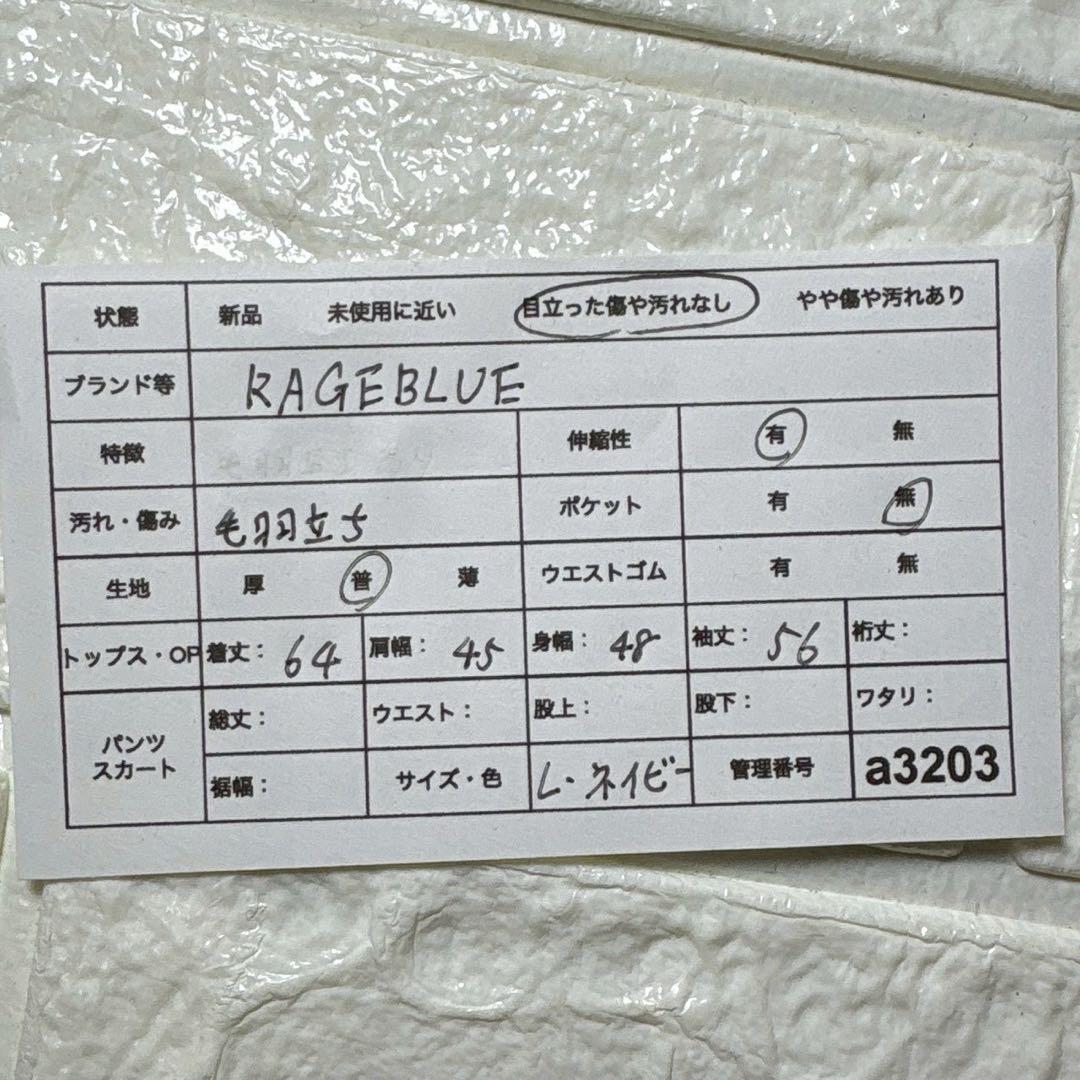 状態 新品 未使用に近い 目立った傷や汚れなし やや傷や汚れあり
ブランド等 RAGEBLUE
特徴 伸縮性 有 無
汚れ・傷み 毛羽立ち ポケット 有 無
生地 厚 普 薄 ウエストゴム 有 無
トップス・OP 着丈: 64 肩幅: 45 身幅: 48 袖丈: 56 裄丈:
パンツ スカート 総丈: ウエスト: 股上: 股下: ワタリ:
裾幅: サイズ・色 L・ネイビー 管理番号 a3203